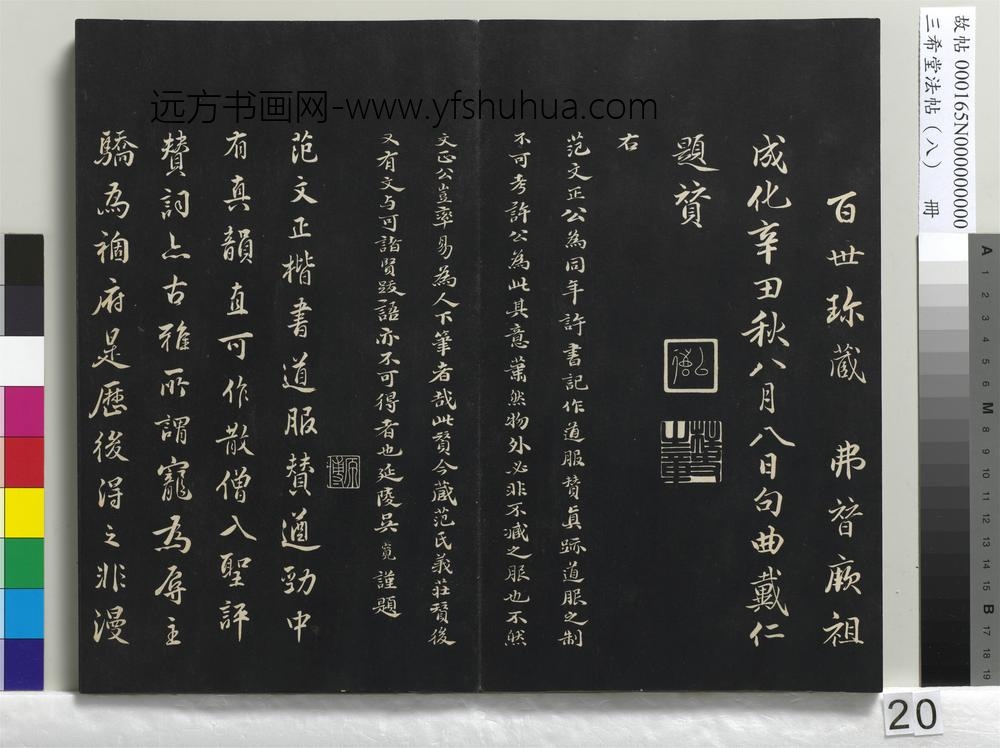 百世珎蔵　弗替厥祖
成化辛丑秋八月八日句曲戴仁
題
右
范文正公為同年許書記作道服賛真跡道服之制
不可考許公為此其意蕭然物外必非不滅之服也不然
文正公豈率易為人下筆者哉此賛今蔵范氏義莊賛後
又有文与可諸賢跋語亦不可得者也延陵吳寬謹題
范文正楷書道服賛遒勁中
有真韻直可作散僧入聖評
賛詞亦古雅所謂寵為辱主
驕為禍府是歴後得之非漫
远方书画网-www.yfshuhua.com
故帖 000165N000000000
三希堂法帖（八） 冊
A 1 2 3 4 5 6 M 8 9 10 11 12 13 14 15 B 17 18 19
20